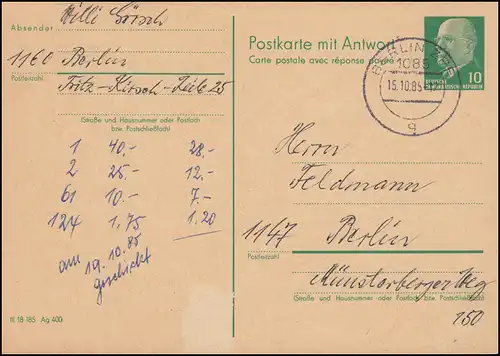 Willi Görsch
Absender
1160 Berlin
Postleitzahl
Fritz-Kirsch-Zeile 25
Straße und Hausnummer oder Postfach
bzw. Postschließfach)
1 40,- 28,-
2 25,- 12,-
61 10,- 7,-
124 1,75 1.20
am 19.10.85
geschickt
III 18 185 Ag 400
Postkarte mit Antwort
Carte postale avec réponse payée
BERLIN
1085
15.10.85
g
10
DEUTSCHE
DEMOKRATISCHE REPUBLIK
Herrn
Feldmann
1147 Berlin
Postleitzahl
Münsterberger Weg
Straße und Hausnummer oder Postfach bzw. Postschließfach)
150